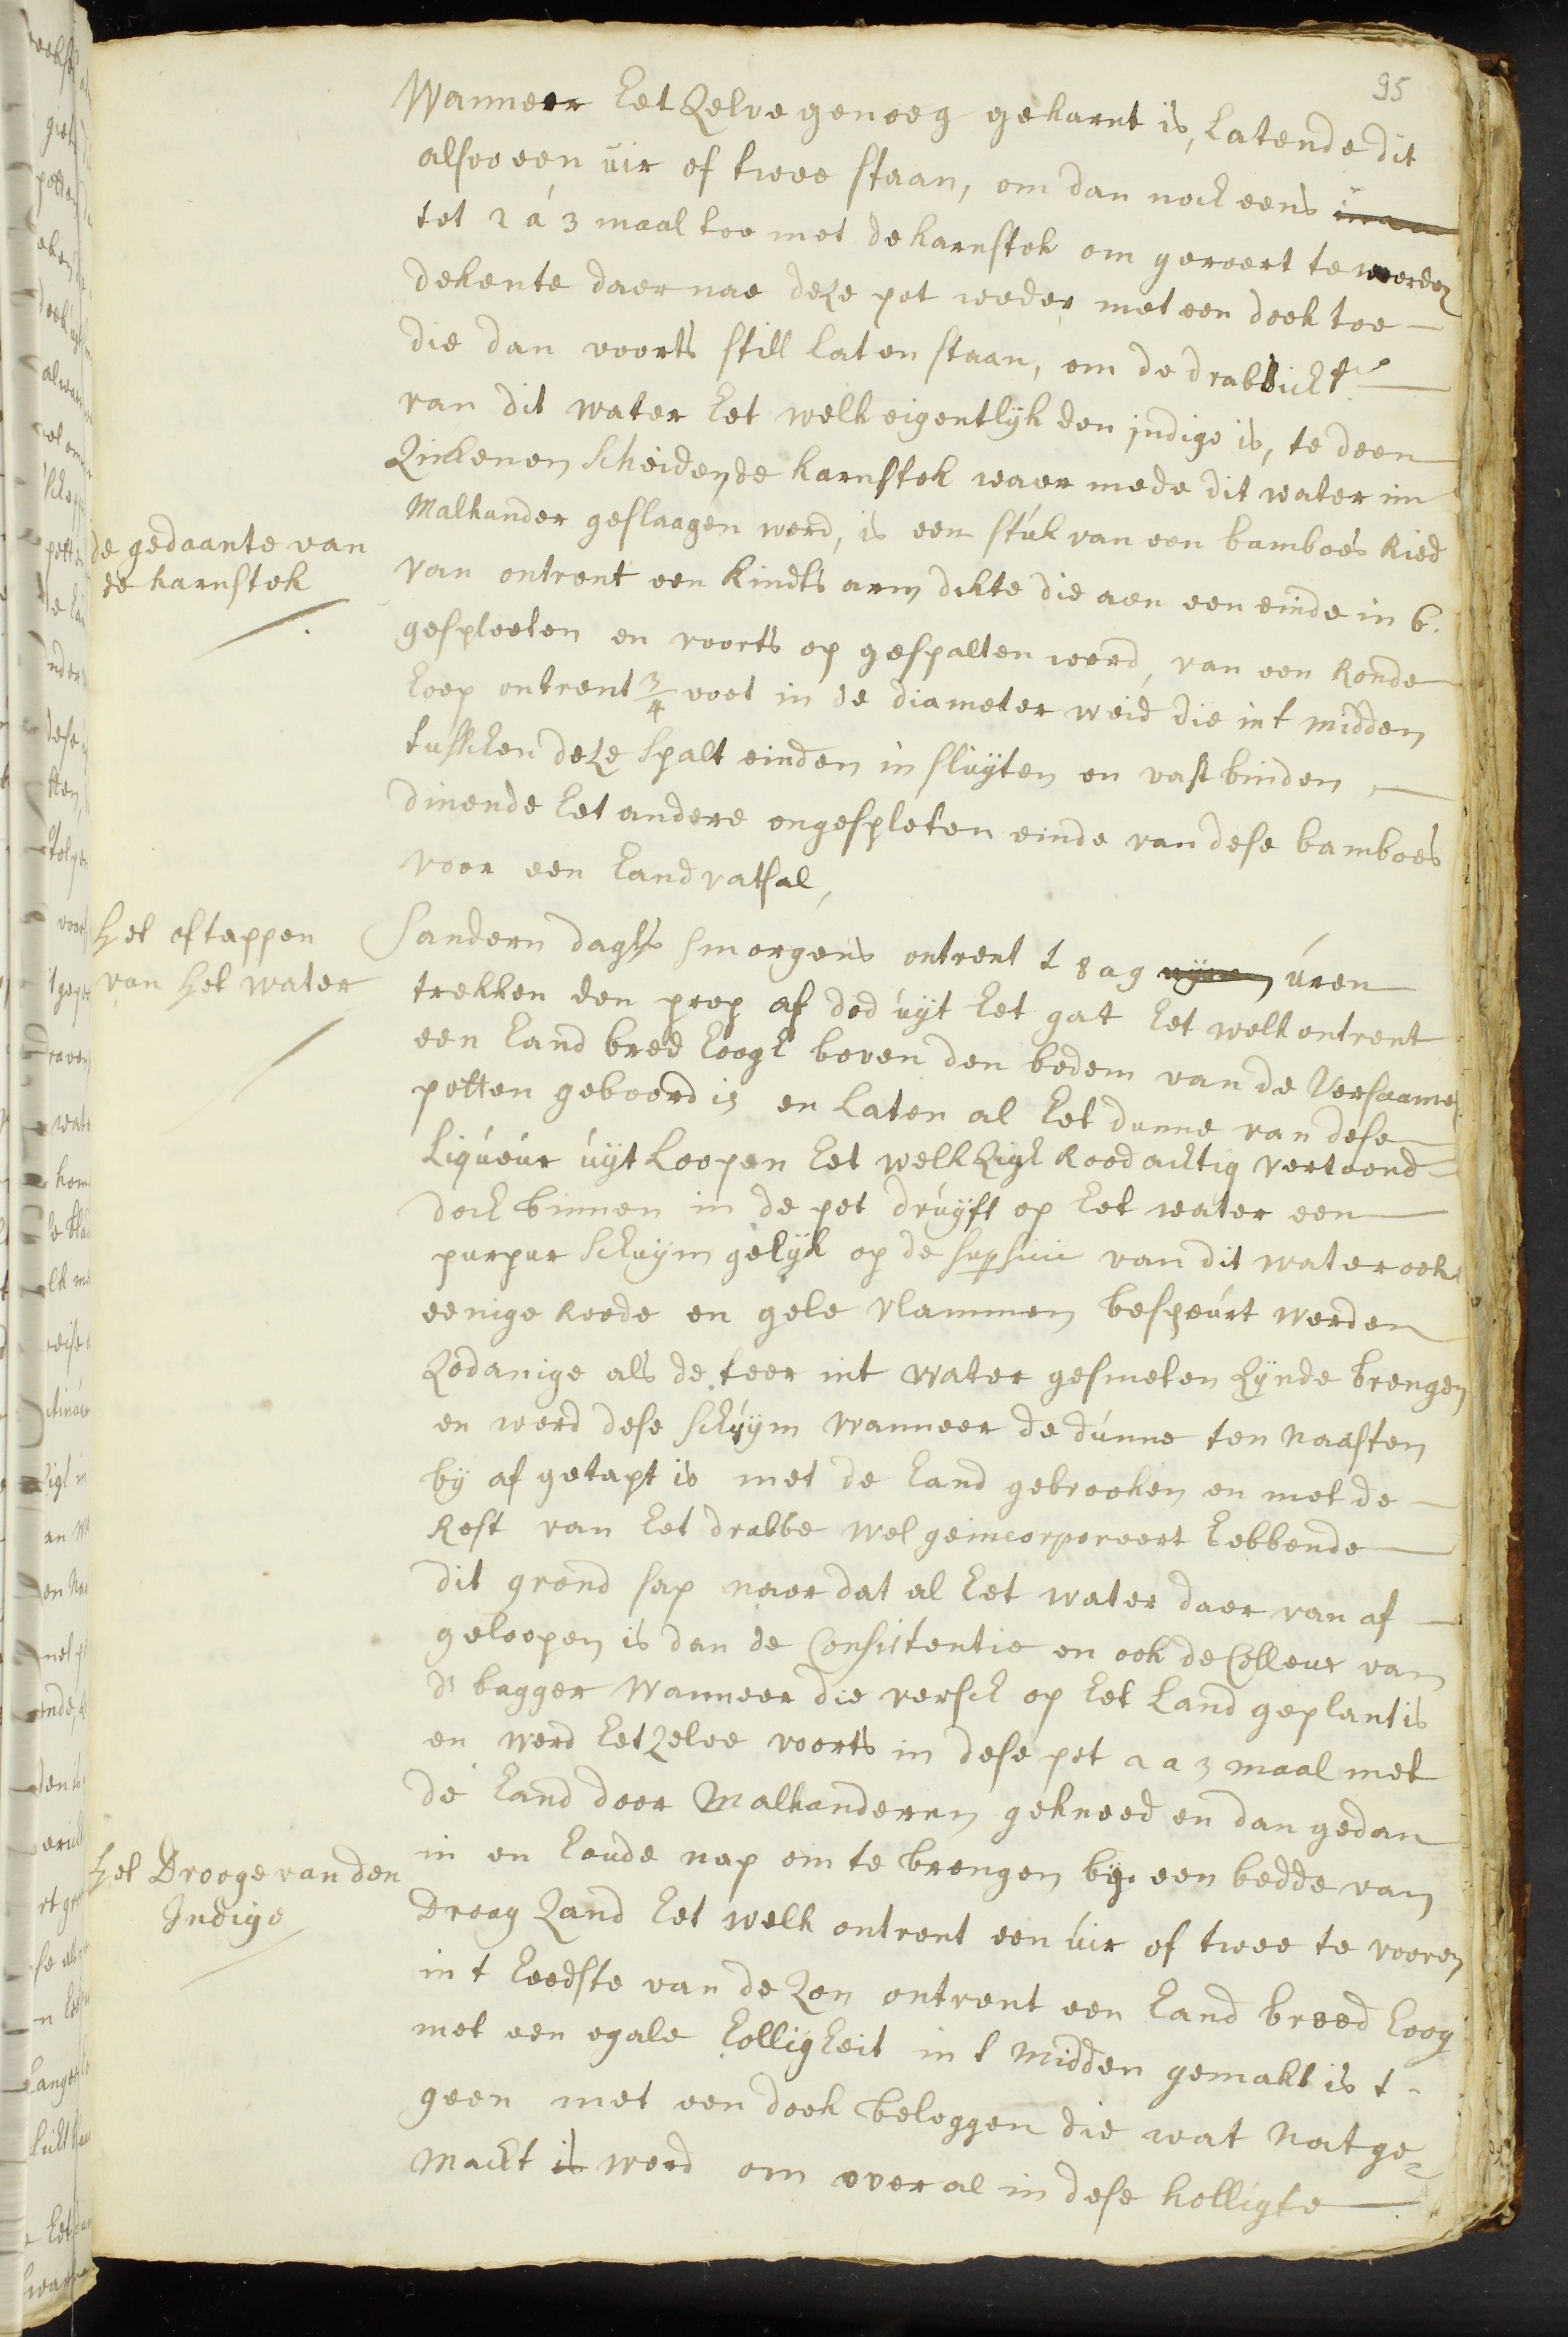 95
Wanneer het zelve genoeg gekarnt is, latende dit
alsoo een uir of twee staan, om dan noch eens
tot 2 á 3 maal toe met de karnstok om geroert te worden
dekente daer nae deze pot weder met een doek toe
die dan voorts still laten staan, om de drabbicht.
van dit water het welk eigentlijk den jndigo is, te doen
zinkenen scheiden, de karnstok waer mede dit water in
Malkander geslaagen werd, is een stúk van een bamboes Ried
de gedaante van
de karnstok
van ontrent een Kindts arm dikte die aen een einde in 6.
gespleeten en voorts op gespalten werd, van een Ronde
hoep ontrent 3/4 voet in de diameter weid die in t midden
tusschen deze spalt einden in sluÿten en vast binden
dinende het andere ongespleten einde van dese bamboes
voor een handvatsal,
Het aftappen
van het water
Sandern daghs smorgens ontrent t 8 a 9 úren
trekken den prop af dod úÿt het gat het welk ontrent
een hand bred hoogh boven den bodem van de Versaame
potten geboord is en laten al het dunne van dese
Liqúeúr úÿt Loopen het welk zigh Rood achtig vertoond
doch binnen in de pot drúÿft op het water een
purpur schuÿm gelÿk op de van dit water ook
eenige Roode en gele vlammen bespeúrt werden
zodanige als de teer int water gesmeten zÿnde brengen
en werd dese schúÿm wanneer de dúnne ten naasten
bÿ af getapt is met de hand gebrooken en met de
Rest van het drabbe wel geincorporeert hebbende
dit grond sap naer dat al het water daer van af
geloopen is dan de Consistentie en ook de Colleur van
d' bagger wanneer die versch op het Land geplant is
en werd het zelve voorts in dese pot 2 a 3 maal met
de hand door Malkanderen gekneed en dan gedan
in en houde nap om te brengen bÿ een bedde van
Het Drooge van den
Indigo
Droog zand het welk ontrent een úir of twee te vooren
in t heedste van de zon ontrent een hand breed hoog
met een egale holligheit in t midden gemakt is t
geen met een doek beleggen die wat nat ge=
Macht is werd om over al in dese holligte